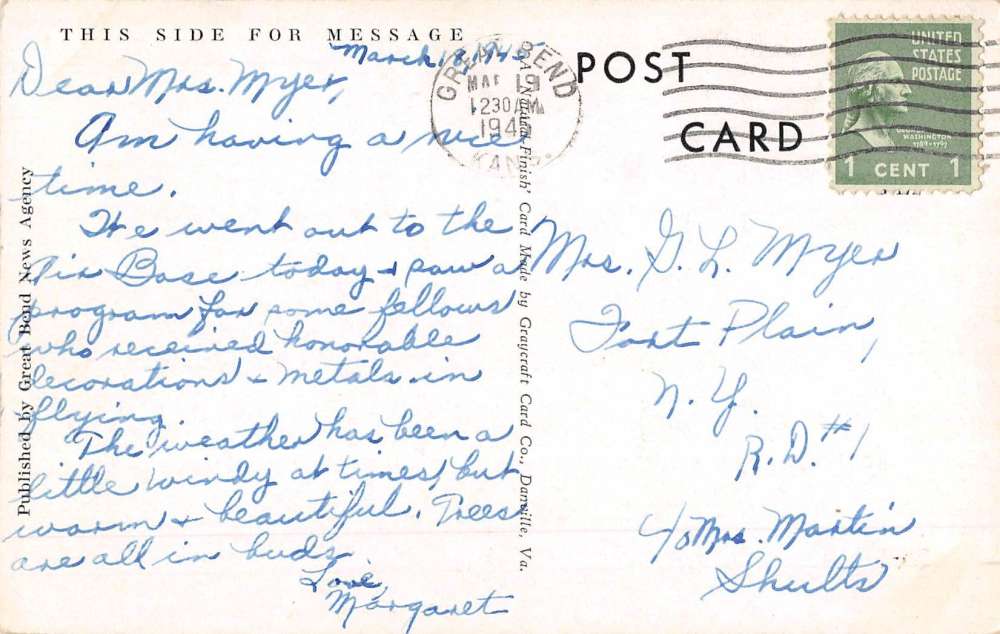 THIS SIDE FOR MESSAGE
March 18, 1945
Dear Mrs. Myer,
Am having a nice
time.
We went out to the
Air Base today + saw a
program for some fellows
who received honorable
decorations + metals in
flying.
The weather has been a
little windy at times, but
warm + beautiful. Trees
are all in buds.
Love,
Margaret
Published by Great Bend News Agency
Natural Finish' Card Made by Graycraft Card Co., Danville, Va.
GREAT BEND
MAR 19
1230 AM
194
KANS.
POST
CARD
UNITED
STATES
POSTAGE
GEORGE
WASHINGTON
1789-1797
1 CENT 1
Mrs. G. L. Myer
Fort Plain,
N. Y.
R.D. #1
c/o Mrs. Martin
Shults